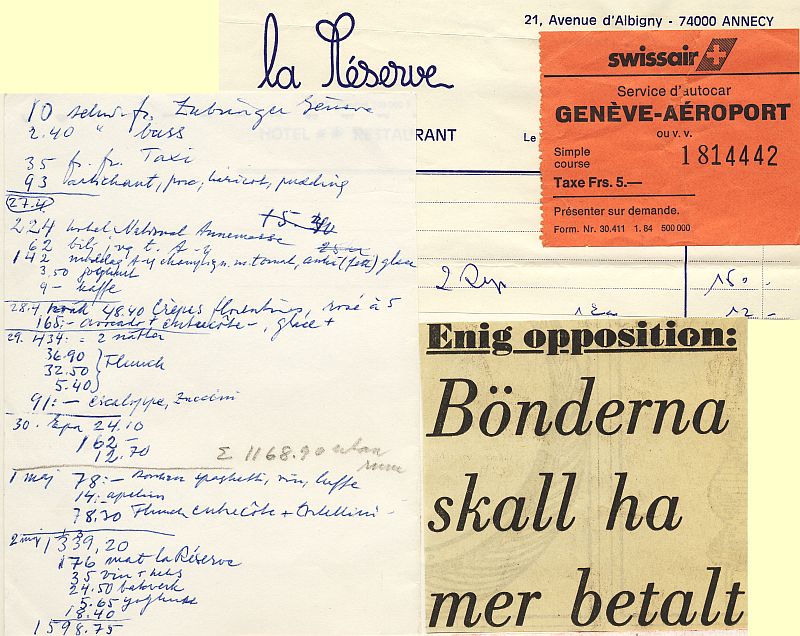 21, Avenue d'Albigny - 74000 ANNECY
la Réserve
RANT
Le
swissair
Service d'autocar
GENÈVE-AÉROPORT
ou v. v.
Simple
course
1814442
Taxe Frs. 5.—
Présenter sur demande.
Form. Nr. 30.411 1. 84 500 000
2 Dep 150.-
12.-
10 schw. fr. Genève
2.40 " buss
35 fr. fr. Taxi
93 haricots, pudding
27.4
224 hotel National Annemasse
62
142 glace
3.50 joghurt
9 - kaffe
28.4 48.40 Crêpes florentines, rosé à 5
165:- avocado + entrecôte -, glace +
29. 434:- = 2 nätter
36.90
32.50 Flunch
5.40
91:-
30. Epa 24.10
162-
12.70
Σ 1168.90 utan
rum
1 maj 78:- spaghetti, vin, kaffe
14:
78.30 Flunch entrecôte +
2 maj 1339,20
176 mat la Réserve
35 vin +
24.50 bakverk
5.65 yoghurt
18.40
1598.75
Enig opposition:
Bönderna
skall ha
mer betalt